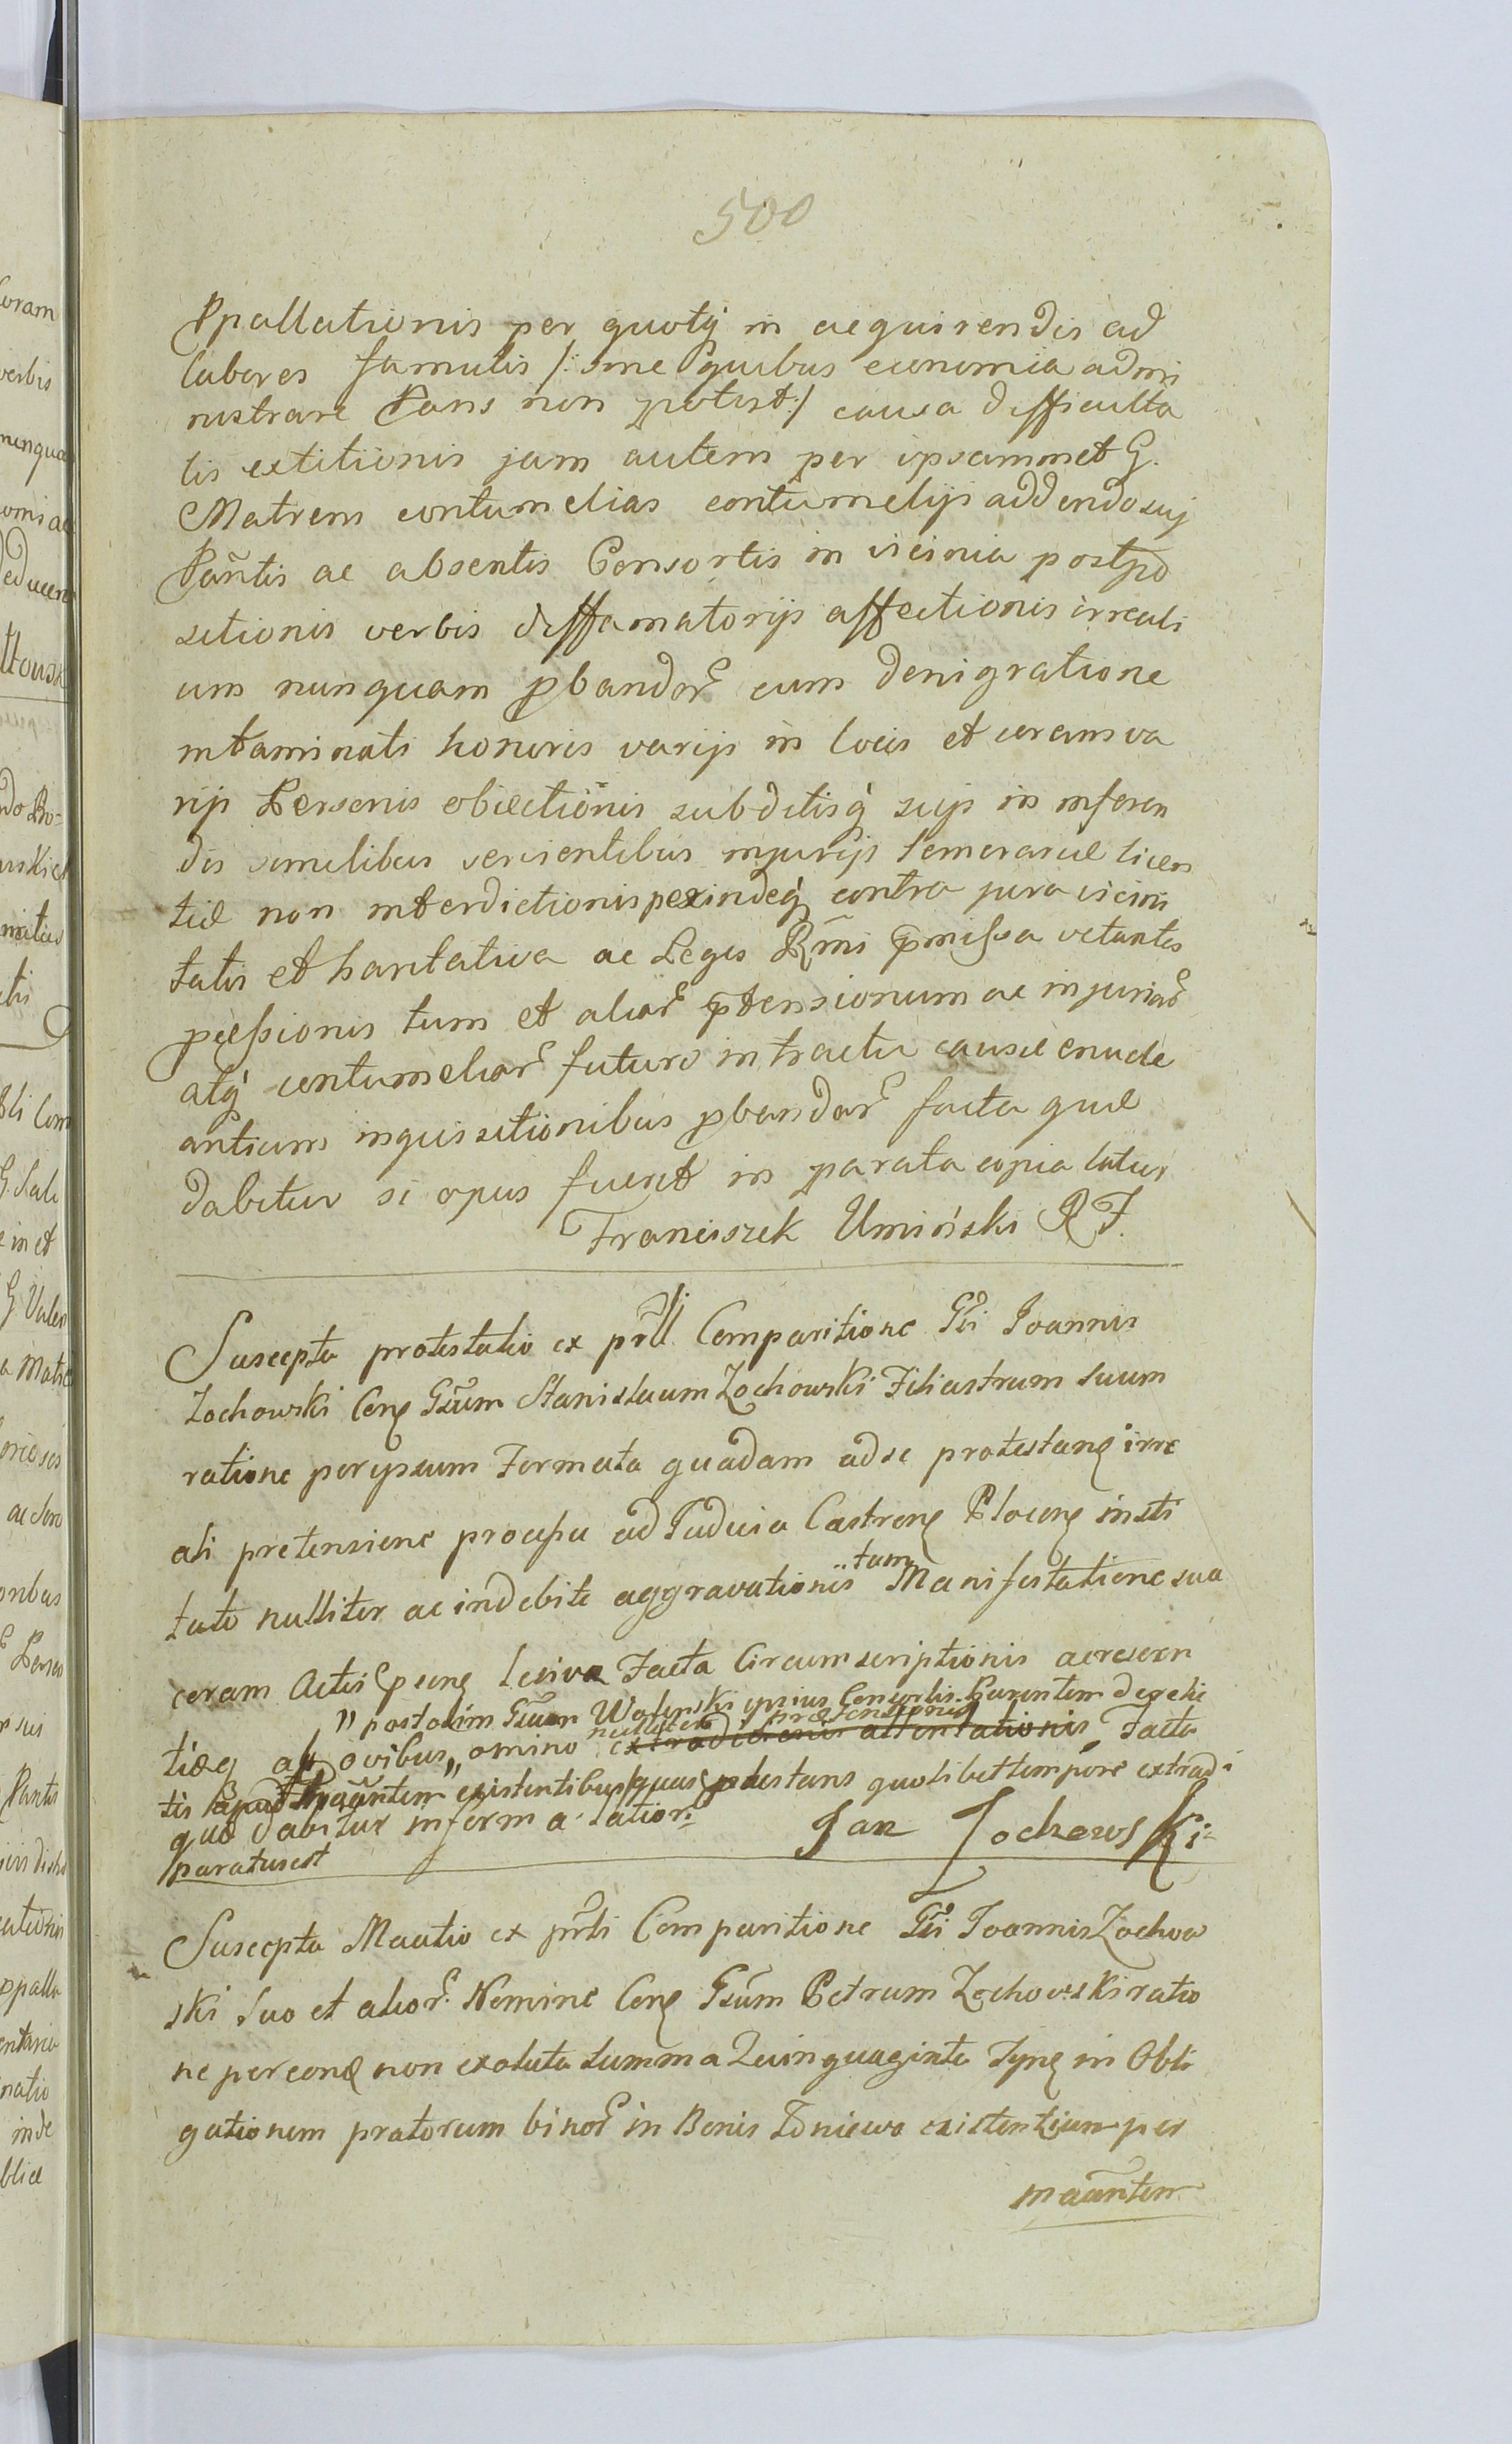 500
Ppallationis per quotq́ in acquirendis ad
labores famulis /: sine quibus economia admi
nistrare Pans non potest :/ causa difficulta
tis extitionis jam autem per ipsammet G.
Matrem contumelias contumelijs addendo suij
Pañtis ac absentis Consortis in vicinia postpo
sitionis verbis diffamatorijs affectionis irreali
um nunquam pbandor̃ cum denigratione
intaminati honoris varijs in locis et coram va
rijs Personis obiectionis subditisq́ suis in inferen
dis similibus servientibus injurijs temerariæ licen
tiæ non interdictionis proindeq́ contra jura vicini
tatis et hantativa ac Leges Rm̃i pmissa vetantes
pcessionis tum et alior̃ ptensionum ac injuriar̃
atq́ contumeliar̃ futuro in tractu causæ enucle
antium inquisitionibus pbandar̃ facta quæ
dabitur si opus fuerit in parata copia latius
Franciszek Umiński R F.
Suscepta protestatio ex pr̃li Comparitione Gĩi Joannis
Zochowski Conȩ Gsũm Stanislaum Zochowski Filiastrum Suum
ratione per ipsum Formata quadam ad se protestanȩ irre
ali pretensione processu ad Judicia Castrenȩ Plocenȩ insti
tuto nulliter ac indebite aggravationis tum Manifestatione sua
coram Actis psenȩ lesiva Facta Circumscriptionis acrescen
" postolim Gsum Wolinski ipsius Consortis Parentem derelic
tiæq ab ovibus " omino nulliter extradicionis prætensionis attentationis, Facta
tis apud Ptañtem " existentibus quas ptestans quolibet tempore extradi
quæ dabitur in forma latior̃
paratus est
Jan Zochowski
Suscepta Maãtio ex pr̃li Comparitione Gĩi Joannis Zochow
ski Suo et alior̃ Nomine Conȩ Gsũm Petrum Zochowski ratio
ne per eonđ non exoluta summa Quinquaginta Tynȩ in Obli
gationem pratorum binor̃ in Bonis Zdniewo existentium per
maãntem